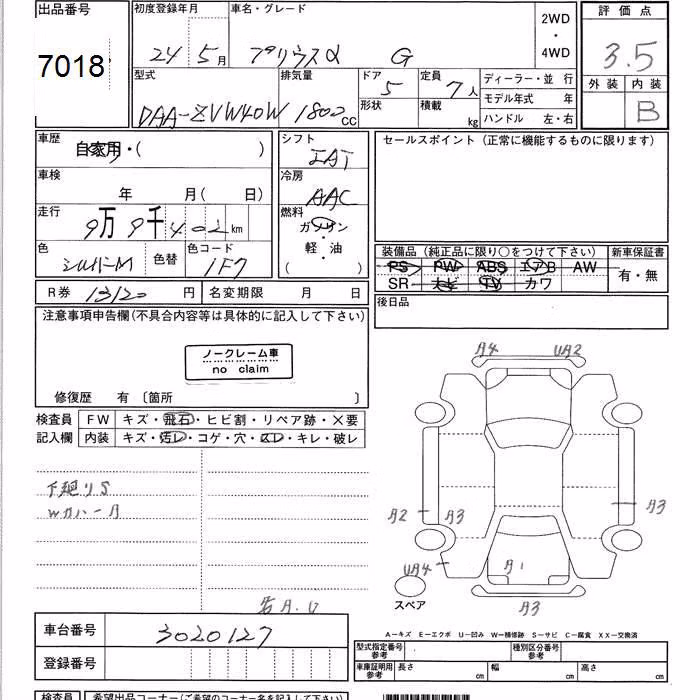 出品番号 初度登録年月 車名・グレード 2WD・4WD 評価点
7018 24 5月 プリウスα G 3.5
型式 排気量 ドア 5 定員 7人 ディーラー・並 行 外装 内装
DAA-ZVW40W 1800cc 形状 積載 kg モデル年式 年 B
ハンドル 左・右
車歴 自家用・( ) シフト IAT セールスポイント (正常に機能するものに限ります)
車検 年 月( 日) 冷房 AAC
走行 9万9千402km 燃料 ガソリン・軽・油 ( )
色 シルバーM 色替 色コード 1F7 装備品 (純正品に限り○をつけて下さい) 新車保証書
PS PW ABS エアB AW 有・無
SR ナビ TV カワ
R券 13120円 名変期限 月 日 後日品
注意事項申告欄(不具合内容等は具体的に記入して下さい)
ノークレーム車
no claim
修復歴 有 〔箇所 〕
検査員 FW キズ・飛石・ヒビ割・リペア跡・X要
記入欄 内装 キズ・汚レ・コゲ・穴・スレ・キレ・破レ
A4 UA2
下廻りS
WカバーA
A2 A3 A3
UA4 A1
スペア A3
若A.U
A－キズ E－エクボ U－凹み W－補修跡 S－サビ C－腐食 XX－交換済
車台番号 3020127
型式指定番号 参考 種別区分番号 参考
登録番号 車庫証明用 参考 長さ cm 幅 cm 高さ cm
検査員 希望出品コーナー(ご希望のコーナー名を記入して下さい)